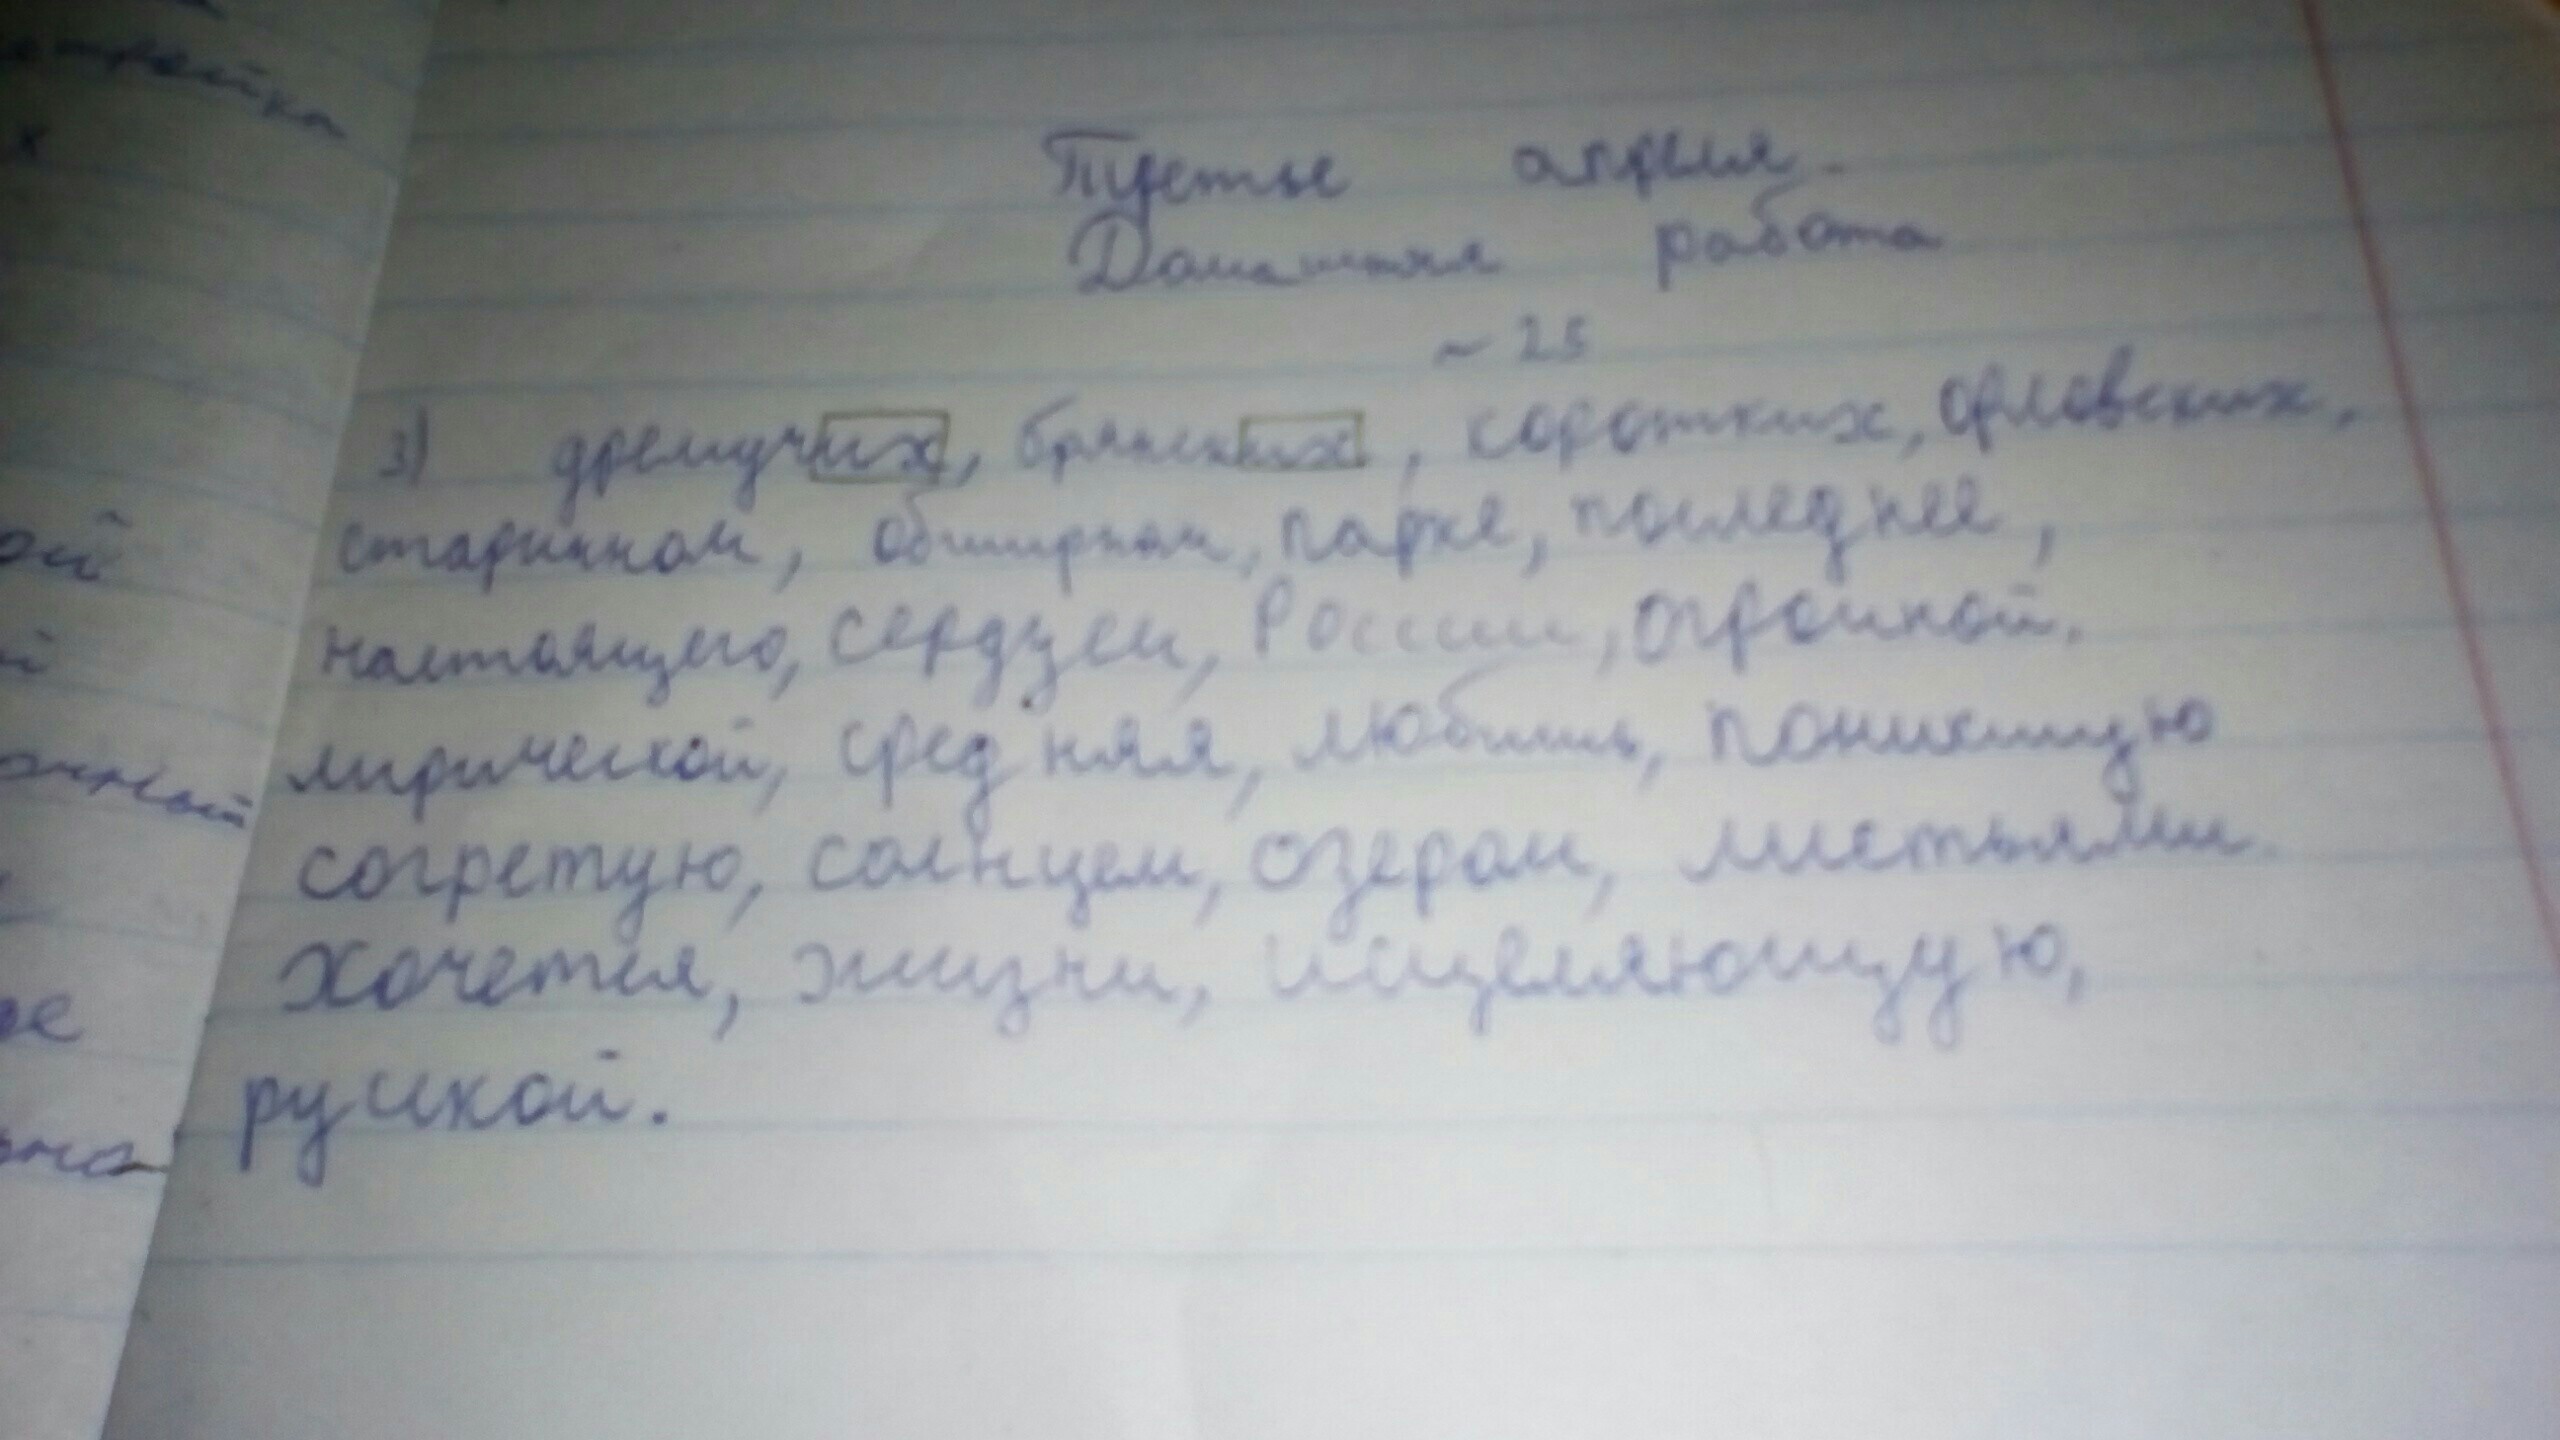 Третье апреля.
Домашняя работа
~ 25
3) дремучих, брянских, коротких, орловских,
старинном, обширном, парке, последнее,
настоящего, сердцем, России, огромной,
лирической, средняя, любишь, поникшую
согретую, солнцем, озерам, листьями.
Хочется, жизни, исцеляющую,
русской.
ой